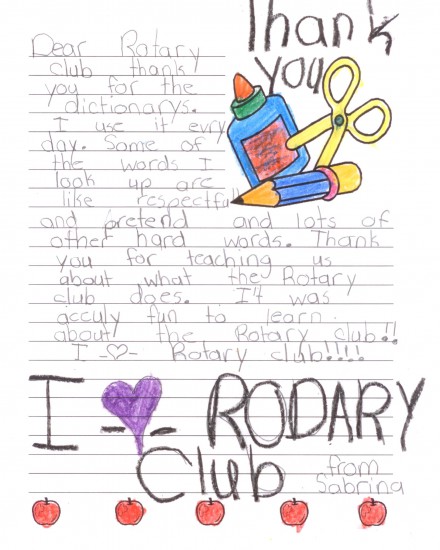 Thank
you
Dear Rotary
club thank
you for the
dictionarys.
I use it evry
day. Some of
the words I
look up are
like respectful
and pretend and lots of
other hard words. Thank
you for teaching us
about what the Rotary
club does. I't was
acculy fun to learn.
about the Rotary club!!
I -♡- Rotary club!!!!
I -♥- RODARY
Club
from
Sabrina